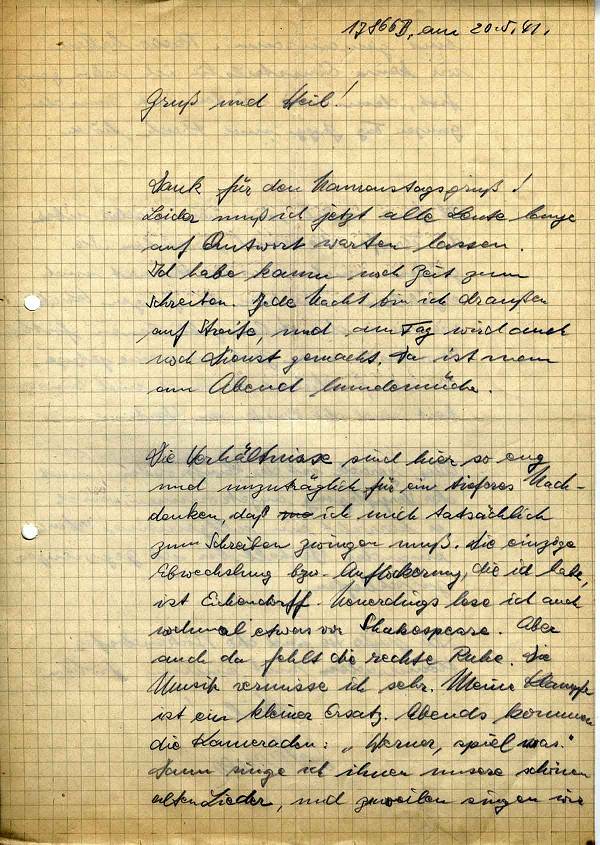 17866 D, am 20.5.41.
Gruß und Heil!
Dank für den Namenstagsgruß!
Leider muß ich jetzt alle Leute lange
auf Antwort warten lassen.
Ich habe kaum noch Zeit zum
Schreiben. Jede Nacht bin ich draußen
auf Streife, und am Tag wird auch
noch Dienst gemacht. Da ist man
am Abend hundemüde.
Die Verhältnisse sind hier so eng
und unzuträglich für ein tieferes Nach-
denken, daß ich mich tatsächlich
zum Schreiben zwingen muß. Die einzige
Abwechslung bzw. Auflockerung, die ich habe,
ist Eichendorff. Neuerdings lese ich auch
nochmal etwas von Shakespeare. Aber
auch da fehlt die rechte Ruhe. Die
Musik vermisse ich sehr. Meine Klampfe
ist ein kleiner Ersatz. Abends kommen
die Kameraden: „Werner, spiel was."
Dann singe ich ihnen unsere schönen
alten Lieder, und zuweilen singen wir